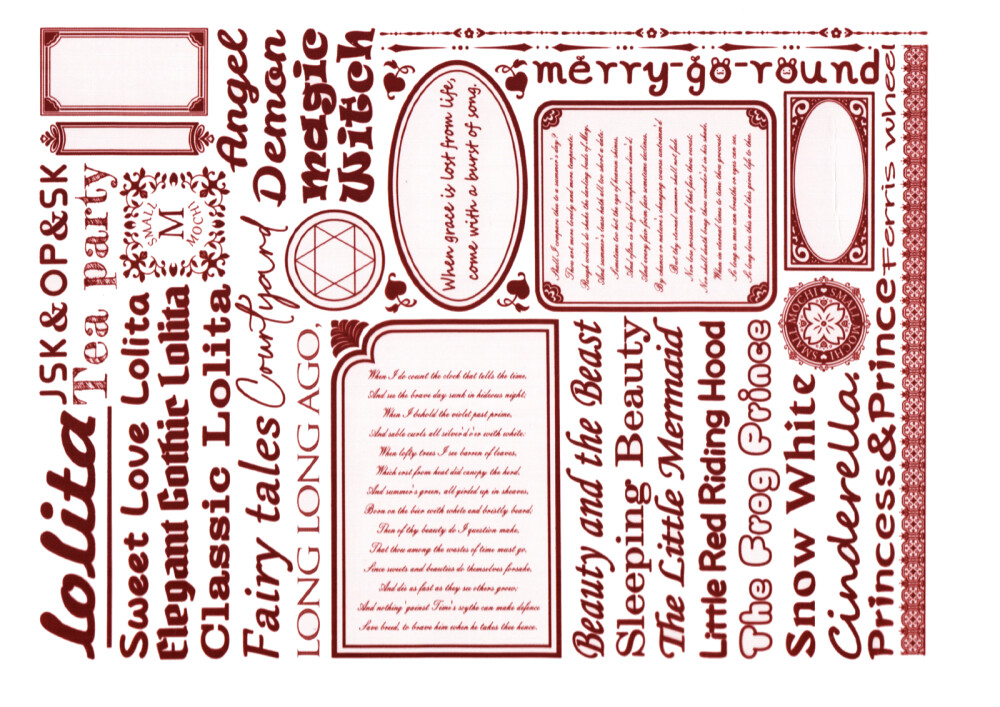 lolita
JSK & OP&SK
Tea party
Sweet Love Lolita
SMALL
M
MOCHI
Elegant Gothic Lolita
Classic Lolita
Angel
Fairy tales
Courtyard
Demon
LONG LONG AGO,
magic
Witch
When I do count the clock that tells the time,
And see the brave day sunk in hideous night;
When I behold the violet past prime,
And sable curls all silver'd o'er with white:
When lofty trees I see barren of leaves,
Which erst from heat did canopy the herd,
And summer's green, all girded up in sheaves,
Born on the bier with white and bristly beard;
Then of thy beauty do I question make,
That thou among the wastes of time must go,
Since sweets and beauties do themselves forsake,
And die as fast as they see others grow;
And nothing 'gainst Time's scythe can make defence
Save breed, to brave him when he takes thee hence.
When grace is lost from life,
come with a burst of song.
merry-go-round
Shall I compare thee to a summer's day?
Thou art more lovely and more temperate:
Rough winds do shake the darling buds of May,
And summer's lease hath all too short a date:
Sometime too hot the eye of heaven shines,
And often is his gold complexion dimm'd;
And every fair from fair sometime declines,
By chance or nature's changing course untrimm'd
But thy eternal summer shall not fade
Nor lose possession of that fair thou owest;
Nor shall death brag thou wander'st in his shade,
When in eternal lines to time thou growest:
So long as men can breathe or eyes can see,
So long lives this and this gives life to thee.
Beauty and the Beast
Sleeping Beauty
The Little Mermaid
Little Red Riding Hood
The Frog Prince
Snow White
SMALL MOCHI SMALL MOCHI
Cinderella.
Princess&Prince
Ferris wheel